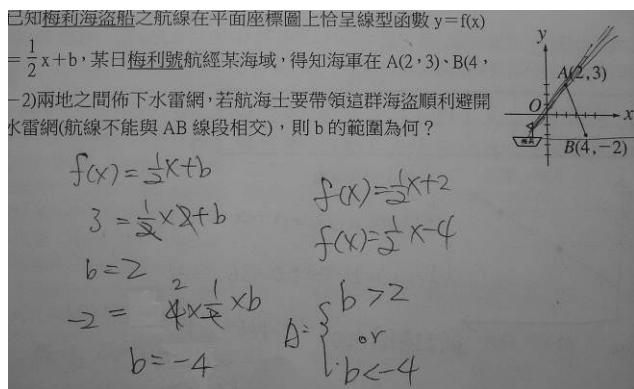 已知梅莉海盜船之航線在平面座標圖上恰呈線型函數 y=f(x)
=1/2x+b,某日梅利號航經某海域,得知海軍在 A(2,3)、B(4,
-2)兩地之間佈下水雷網,若航海士要帶領這群海盜順利避開
水雷網(航線不能與 AB 線段相交),則 b 的範圍為何?
y
A(2,3)
O
x
B(4,-2)
f(x)=1/2x+b
3=1/2×2+b
b=2
-2= 4×1/2×b
2
b=-4
f(x)=1/2x+2
f(x)=1/2x-4
A= { b>2
or
b<-4